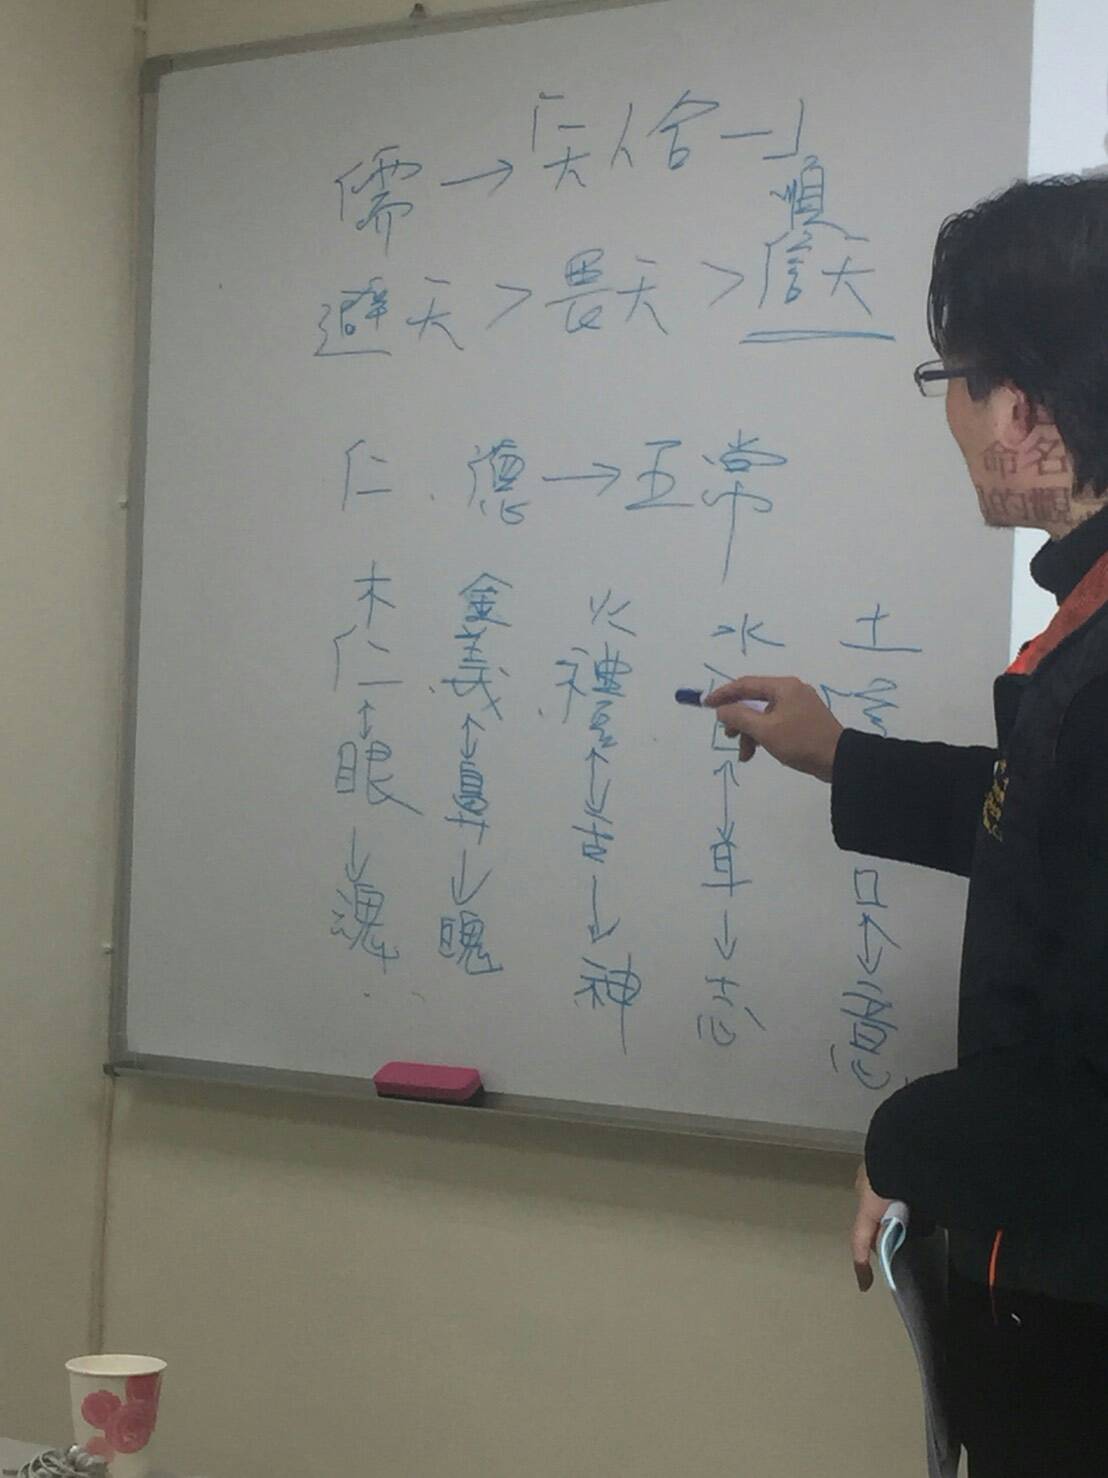 儒→「天人合一」
順
避天>畏天>信天
仁、德→五常
木 金 火 水 土
仁 義 禮
↕ ↕ ↕ ↕
眼 鼻 舌 耳 口
↓ ↓ ↓ ↓ ↕
魂 魄 神 志 意
命名
的觀